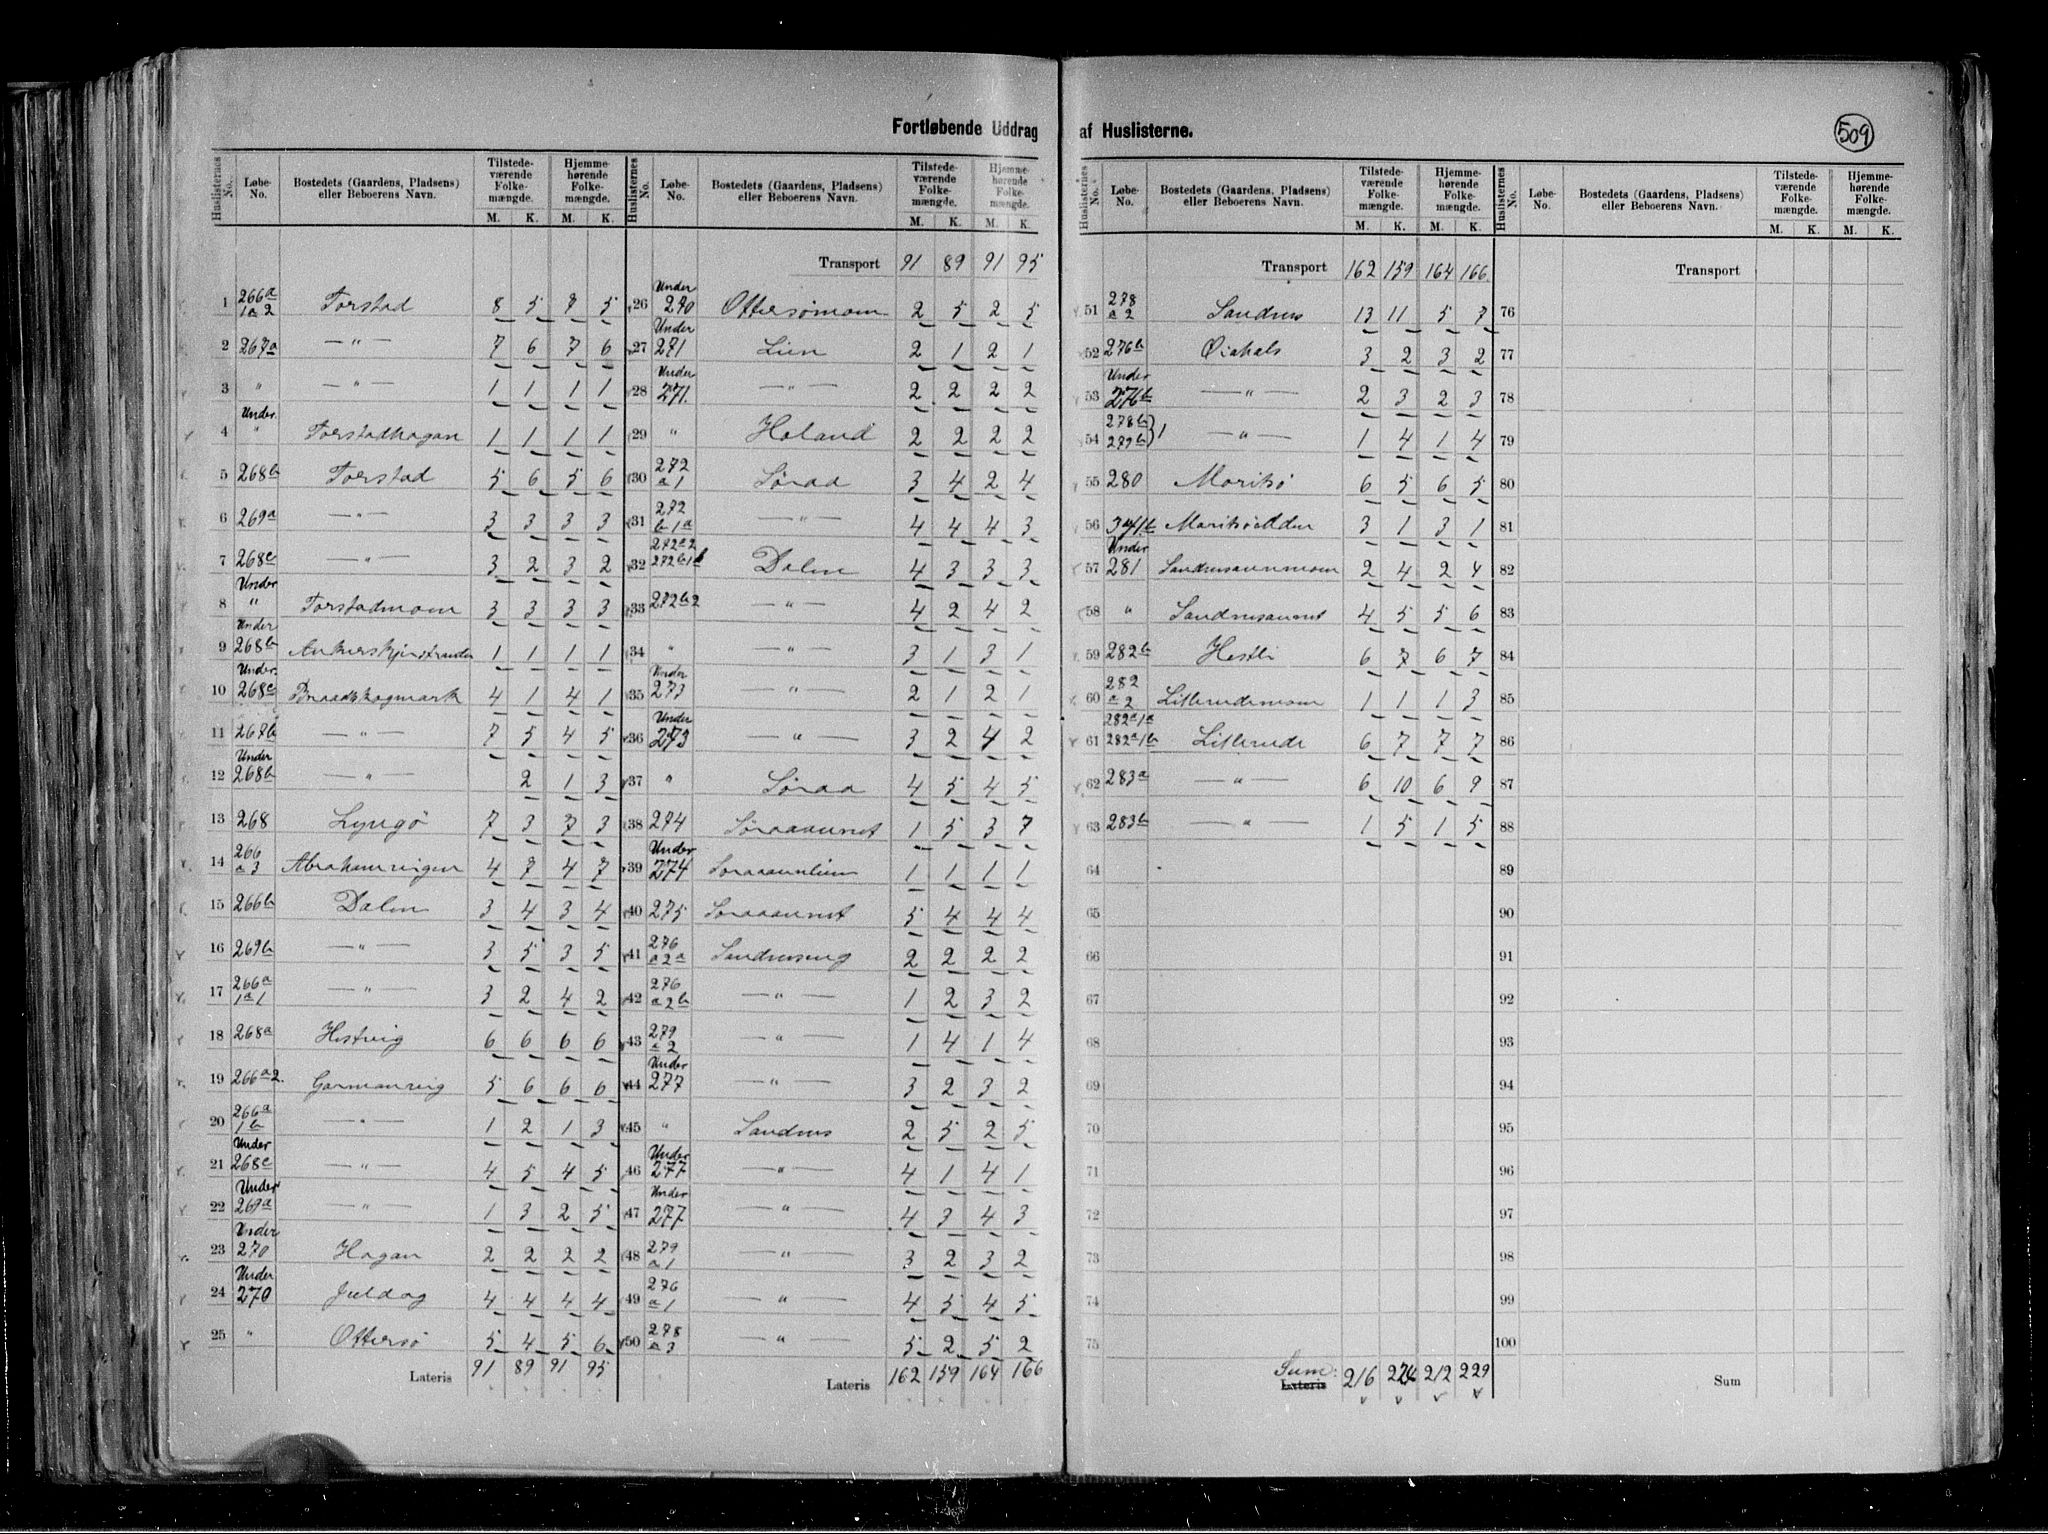 Fortløbende Uddrag af Huslisterne.
509
Huslisternes No. Løbe-No. Bostedets (Gaardens, Pladsens) eller Beboerens Navn. Tilstedeværende Folkemængde. M. K. Hjemmehørende Folkemængde. M. K.
1 266a 1a 2 Torstad 8 5 7 5
2 267a —〃— 7 6 7 6
3 〃 —〃— 1 1 1 1
4 Under 〃 Torstadhagan 1 1 1 1
5 268b Torstad 5 6 5 6
6 269a —〃— 3 3 3 3
7 268c —〃— 3 2 3 2
8 Under 〃 Torstadmoen 3 3 3 3
9 Under 268b 1 1 1 1
10 Under 268c Braadskogmark 4 1 4 1
11 267b —〃— 7 5 4 5
12 Under 268b —〃— 2 1 3
13 268 Lyngsø 7 3 7 3
14 266 a3 Abrahamvigen 4 7 4 7
15 266b Dalen 3 4 3 4
16 269b —〃— 3 5 3 5
17 266a 1a1 —〃— 3 2 4 2
18 268a Hestvig 6 6 6 6
19 266a2. Garmanvig 5 6 6 6
20 266a 1b —〃— 1 2 1 3
21 Under 268c —〃— 4 5 4 5
22 Under 269a —〃— 1 3 2 5
23 Under 270 Hagan 2 2 2 2
24 Under 270 Juldag 4 4 4 4
25 〃 Ottersø 5 4 5 6
Lateris 91 89 91 95
Huslisternes No. Løbe-No. Bostedets (Gaardens, Pladsens) eller Beboerens Navn. Tilstedeværende Folkemængde. M. K. Hjemmehørende Folkemængde. M. K.
Transport 91 89 91 95
26 Under 270 Ottersømoen 2 5 2 5
27 Under 271 Lien 2 1 2 1
28 Under 271. —〃— 2 2 2 2
29 〃 Holand 2 2 2 2
30 272 a1 Søraa 3 4 2 4
31 272 b1a —〃— 4 4 4 3
32 272a2 272b1b Dalen 4 3 3 3
33 272b2 —〃— 4 2 4 2
34 〃 —〃— 3 1 3 1
35 Under 273 —〃— 2 1 2 1
36 Under 273 —〃— 3 2 4 2
37 〃 Søraa 4 5 4 5
38 274 Søraaunet 1 5 3 7
39 Under 274 Søraaunlien 1 1 1 1
40 275 Søraaunet 5 4 4 4
41 276 a2a Sandneseng 2 2 2 2
42 276 a2b —〃— 1 2 3 2
43 279 a2 —〃— 1 4 1 4
44 Under 277 —〃— 3 2 3 2
45 〃 Sandnes 2 5 2 5
46 Under 277 —〃— 4 1 4 1
47 Under 277 —〃— 4 3 4 3
48 279 a1 —〃— 3 2 3 2
49 276 a1 —〃— 4 5 4 5
50 278 a3 —〃— 5 2 5 2
Lateris 162 159 164 166
Huslisternes No. Løbe-No. Bostedets (Gaardens, Pladsens) eller Beboerens Navn. Tilstedeværende Folkemængde. M. K. Hjemmehørende Folkemængde. M. K.
Transport 162 159 164 166
51 278 a2 Sandnes 13 11 5 7
52 276b Øiahals 3 2 3 2
53 Under 276b —〃— 2 3 2 3
54 278b 279b } 1 —〃— 1 4 1 4
55 280 Moritsø 6 5 6 5
56 341b Moritsøodden 3 1 3 1
57 Under 281 Sandnesaunmoen 2 4 2 4
58 〃 Sandnesaunet 4 5 5 6
59 282b Hestli 6 7 6 7
60 282 a2 Litleredemoen 1 1 1 3
61 282a1a 282a1b Litlerede 6 7 7 7
62 283a —〃— 6 10 6 9
63 283b —〃— 1 5 1 5
64
65
66
67
68
69
70
71
72
73
74
75
Sum: Lateris 216 212 229
Huslisternes No. Løbe-No. Bostedets (Gaardens, Pladsens) eller Beboerens Navn. Tilstedeværende Folkemængde. M. K. Hjemmehørende Folkemængde. M. K.
Transport
76
77
78
79
80
81
82
83
84
85
86
87
88
89
90
91
92
93
94
95
96
97
98
99
100
Sum